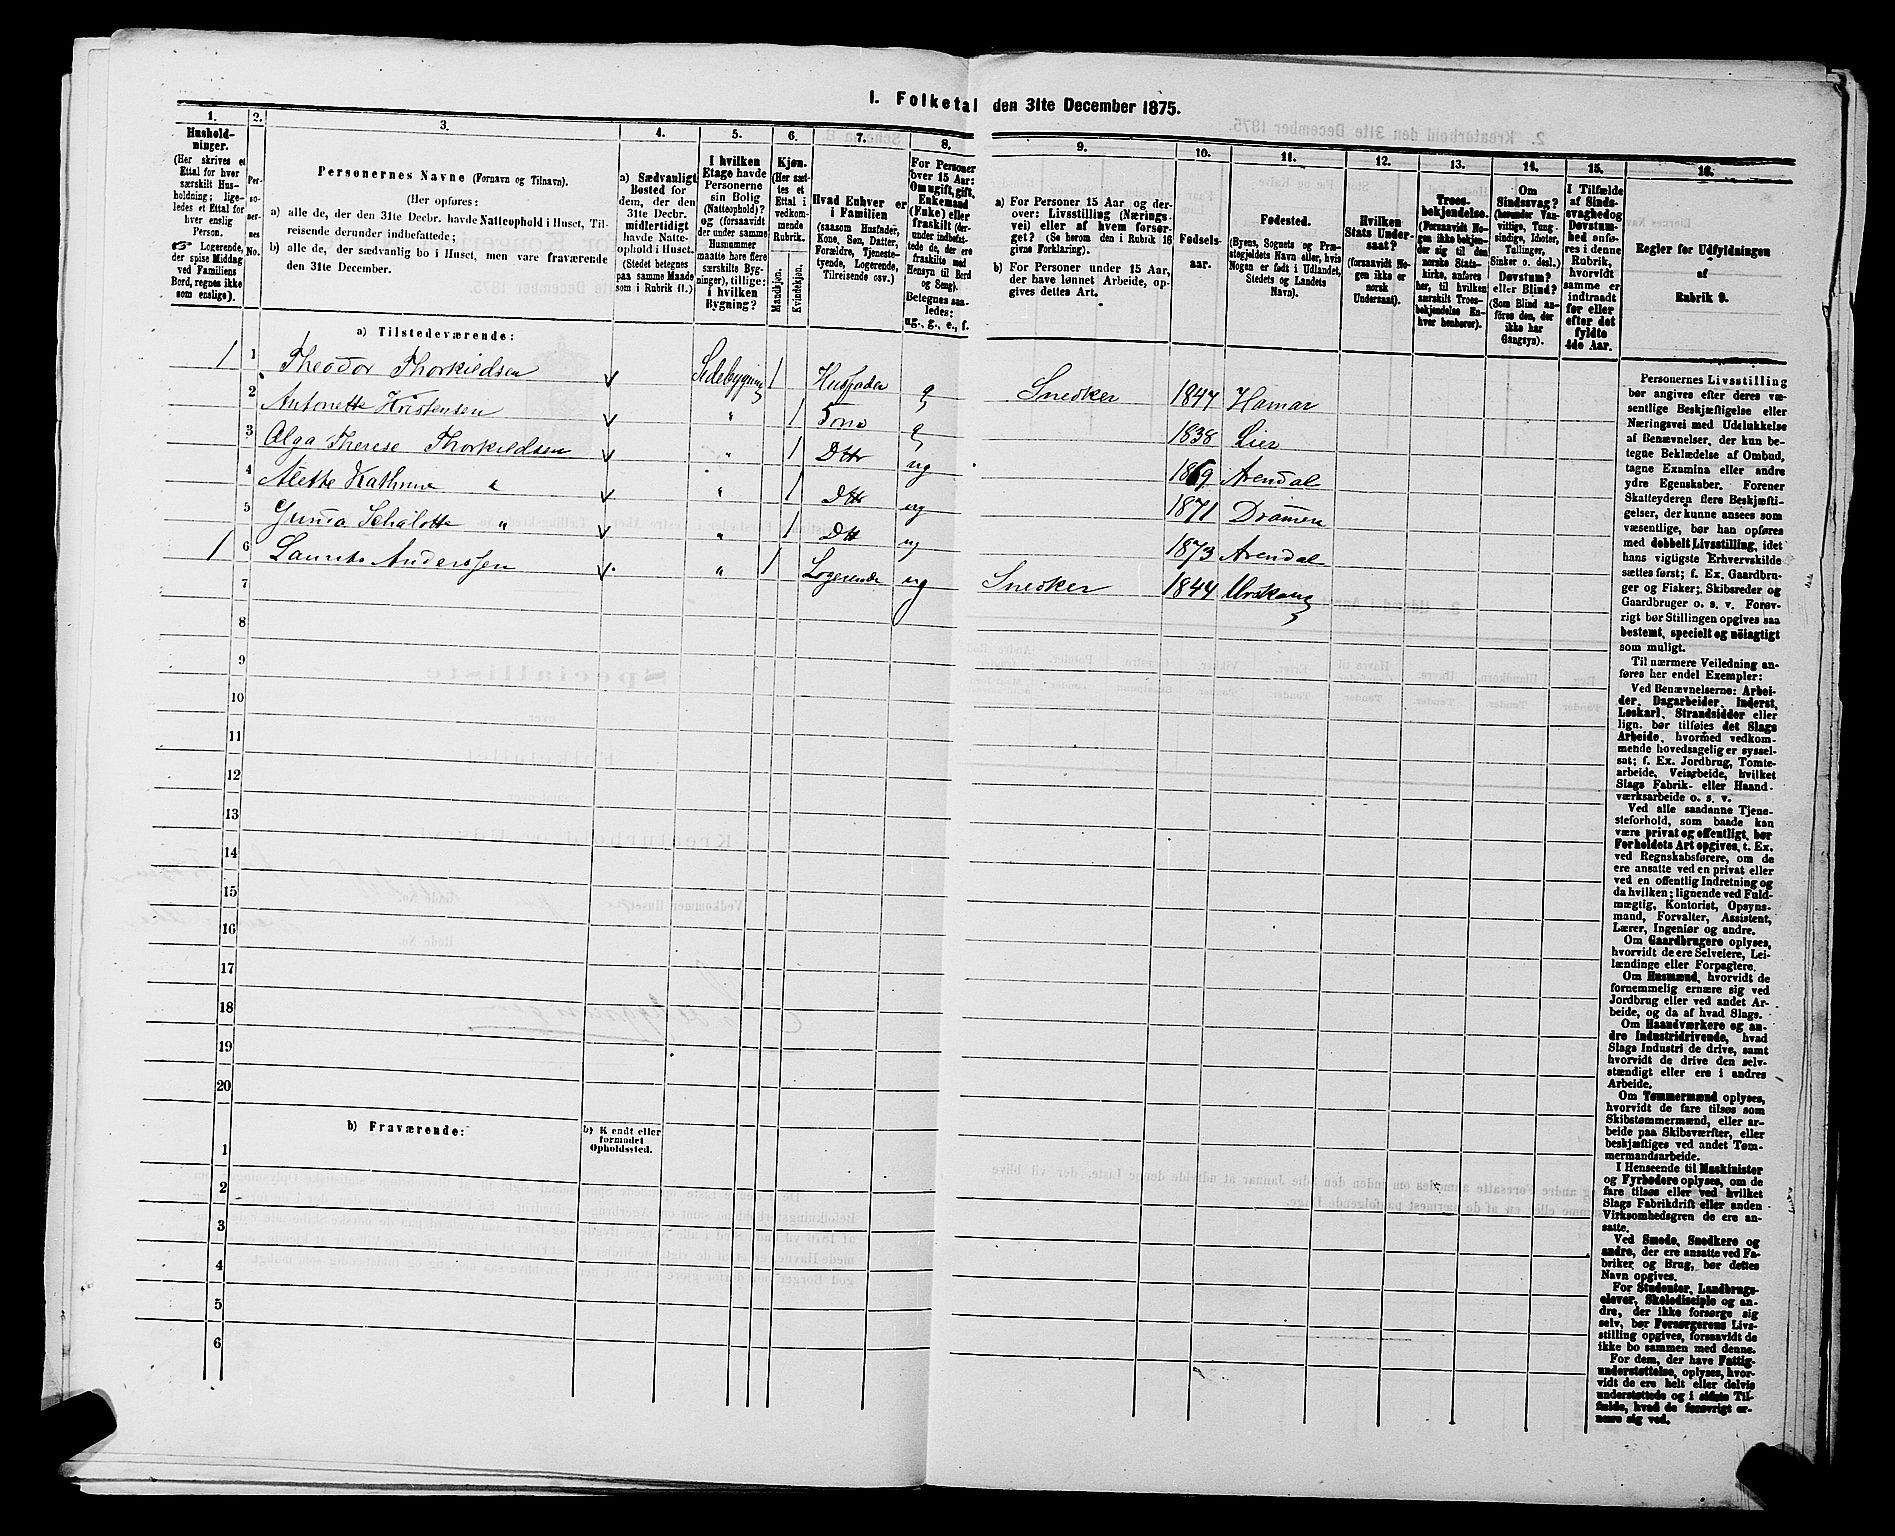 I. Folketal den 31te December 1875.
1. 2. 3. 4. 5. 6. 7. 8. 9. 10. 11. 12. 13. 14. 15. 16.
Husholdninger.
(Her skrives et Ettal for hver særskilt Husholdning; ligeledes et Ettal for hver enslig Person.
☞ Logerende, der spise Middag ved Familiens Bord, regnes ikke som enslige).
Personernes No.
Personernes Navne (Fornavn og Tilnavn).
(Her opføres:
a) alle de, der den 31te Decbr. havde Natteophold i Huset, Tilreisende derunder indbefattede;
b) alle de, der sædvanlig bo i Huset, men vare fraværende den 31te December.
a) Sædvanligt Bosted for dem, der den 31te Decbr. midlertidigt havde Natteophold i Huset.
(Stedet betegnes paa samme Maade som i Rubrik 11.)
I hvilken Etage havde Personerne sin Bolig (Natteophold)? og (forsaavidt der under samme Husnummer maatte høre flere særskilte Bygninger), tillige: i hvilken Bygning?
Kjøn.
(Her sættes et Ettal i vedkommende Rubrik.
Mandkjøn.
Kvindekjøn.
Hvad Enhver er i Familien
(saasom Husfader, Kone, Søn, Datter, Forældre, Tjenestetyende, Logerende, Tilreisende osv.)
For Personer over 15 Aar: Om ugift, gift, Enkemand (Enke) eller fraskilt (derunder indbefattede de, der ere fraskilte med Hensyn til Bord og Seng).
Betegnes saaledes: ug., g., e., f.
a) For Personer 15 Aar og derover: Livsstilling (Næringsvei) eller af hvem forsørget? (Se herom den i Rubrik 16 givne Forklaring).
b) For Personer under 15 Aar, der have lønnet Arbeide, opgives dettes Art.
Fødselsaar.
Fødested.
(Byens, Sognets og Præstegjeldets Navn eller, hvis Nogen er født i Udlandet, Stedets og Landets Navn).
Hvilken Stats Undersaat?
(forsaavidt Nogen ikke er norsk Undersaat).
Troesbekjendelse.
(Forsaavidt Nogen ikke bekjender sig til den norske Statskirke, anføres her, til hvilken særskilt Troesbekjendelse Enhver henhører).
Om Sindssvag?
(herunder Vanvittige, Tungsindige, Idioter, Tullinger, Sinker o. desl.)
Døvstum? eller Blind?
(Som Blind anføres den, der ikke har Gangsyn).
I Tilfælde af Sindssvaghed og Døvstumhed anføres i denne Rubrik, hvorvidt samme er indtraadt før eller efter det fyldte 4de Aar.
Regler for Udfyldningen af Rubrik 9.
a) Tilstedeværende:
1 1 Theodor Thorkildsen v Sidebygning 1 Husfader g Snedker 1847 Hamar
2 Antonette Kristensen v " 1 Kone g 1838 Lier
3 Olga Therese Thorkildsen v " 1 Dttr ug 1869 Arendal
4 Alette Kathrine " v " 1 Dttr ug 1871 Dramen
5 Gunda Schalotte " v " 1 Dtt ug 1873 Arendal
1 6 Laurits Anderssen v " 1 Logerende ug Snedker 1844 Urskoug
7
8
9
10
11
12
13
14
15
16
17
18
19
20
b) Fraværende:
b) Kjendt eller formodet Opholdssted.
1
2
3
4
5
6
Personernes Livsstilling bør angives efter deres væsentlige Beskjæftigelse eller Næringsvei med Udelukkelse af Benævnelser, der kun betegne Beklædelse af Ombud, tagne Examina eller andre ydre Egenskaber. Forener Skatteyderen flere Beskjæftigelser, der kunne ansees som væsentlige, bør han opføres med dobbelt Livsstilling, idet hans vigtigste Erhvervskilde sættes først; f. Ex. Gaardbruger og Fisker; Skibsreder og Gaardbruger o. s. v. Forøvrigt bør Stillingen opgives saa bestemt, specielt og nøiagtigt som muligt.
Til nærmere Veiledning anføres her endel Exempler:
Ved Benævnelserne: Arbeider, Dagarbeider, Inderst, Løskarl, Strandsidder eller lign. bør tilføies det Slags Arbeide, hvormed vedkommende hovedsagelig er sysselsat; f. Ex. Jordbrug, Tomtearbeide, Veiarbeide, hvilket Slags Fabrik- eller Haandværksarbeide o. s. v.
Ved alle saadanne Tjenesteforhold, som baade kan være privat og offentligt, bør Forholdets Art opgives, t. Ex. ved Regnskabsførere, om de ere ansatte ved en privat eller ved en offentlig Indretning og da hvilken; lignende ved Fuldmægtig, Kontorist, Opsynsmand, Forvalter, Assistent, Lærer, Ingeniør og andre.
Om Gaardbrugere oplyses, hvorvidt de ere Selveiere, Leilændinge eller Forpagtere.
Om Husmænd, hvorvidt de fornemmelig ernære sig ved Jordbrug eller ved andet Arbeide, og da af hvad Slags.
Om Haandværkere og andre Industridrivende, hvad Slags Industri de drive, samt hvorvidt de drive den selvstændigt eller ere i andres Arbeide.
Om Tømmermænd oplyses, hvorvidt de fare tilsøs som Skibstømmermænd, eller arbeide paa Skibsværfter, eller beskjæftiges ved andet Tømmermandsarbeide.
I Henseende til Maskinister og Fyrbødere oplyses, om de fare tilsøs eller ved hvilket Slags Fabrikdrift eller anden Virksomhedsgren de ere ansatte.
Ved Smede, Snedkere og andre, der ere ansatte ved Fabriker og Brug, bør dettes Navn opgives.
For Studenter, Landbrugselever, Skoledisciple og andre, der ikke forsørge sig selv, bør Forsørgerens Livsstilling opgives, forsaavidt de ikke bo sammen med denne.
For dem, der have Fattigunderstøttelse, oplyses, hvorvidt de ere helt eller delvis understøttede og i sidste Tilfælde, hvad de forøvrigt ernære sig ved.